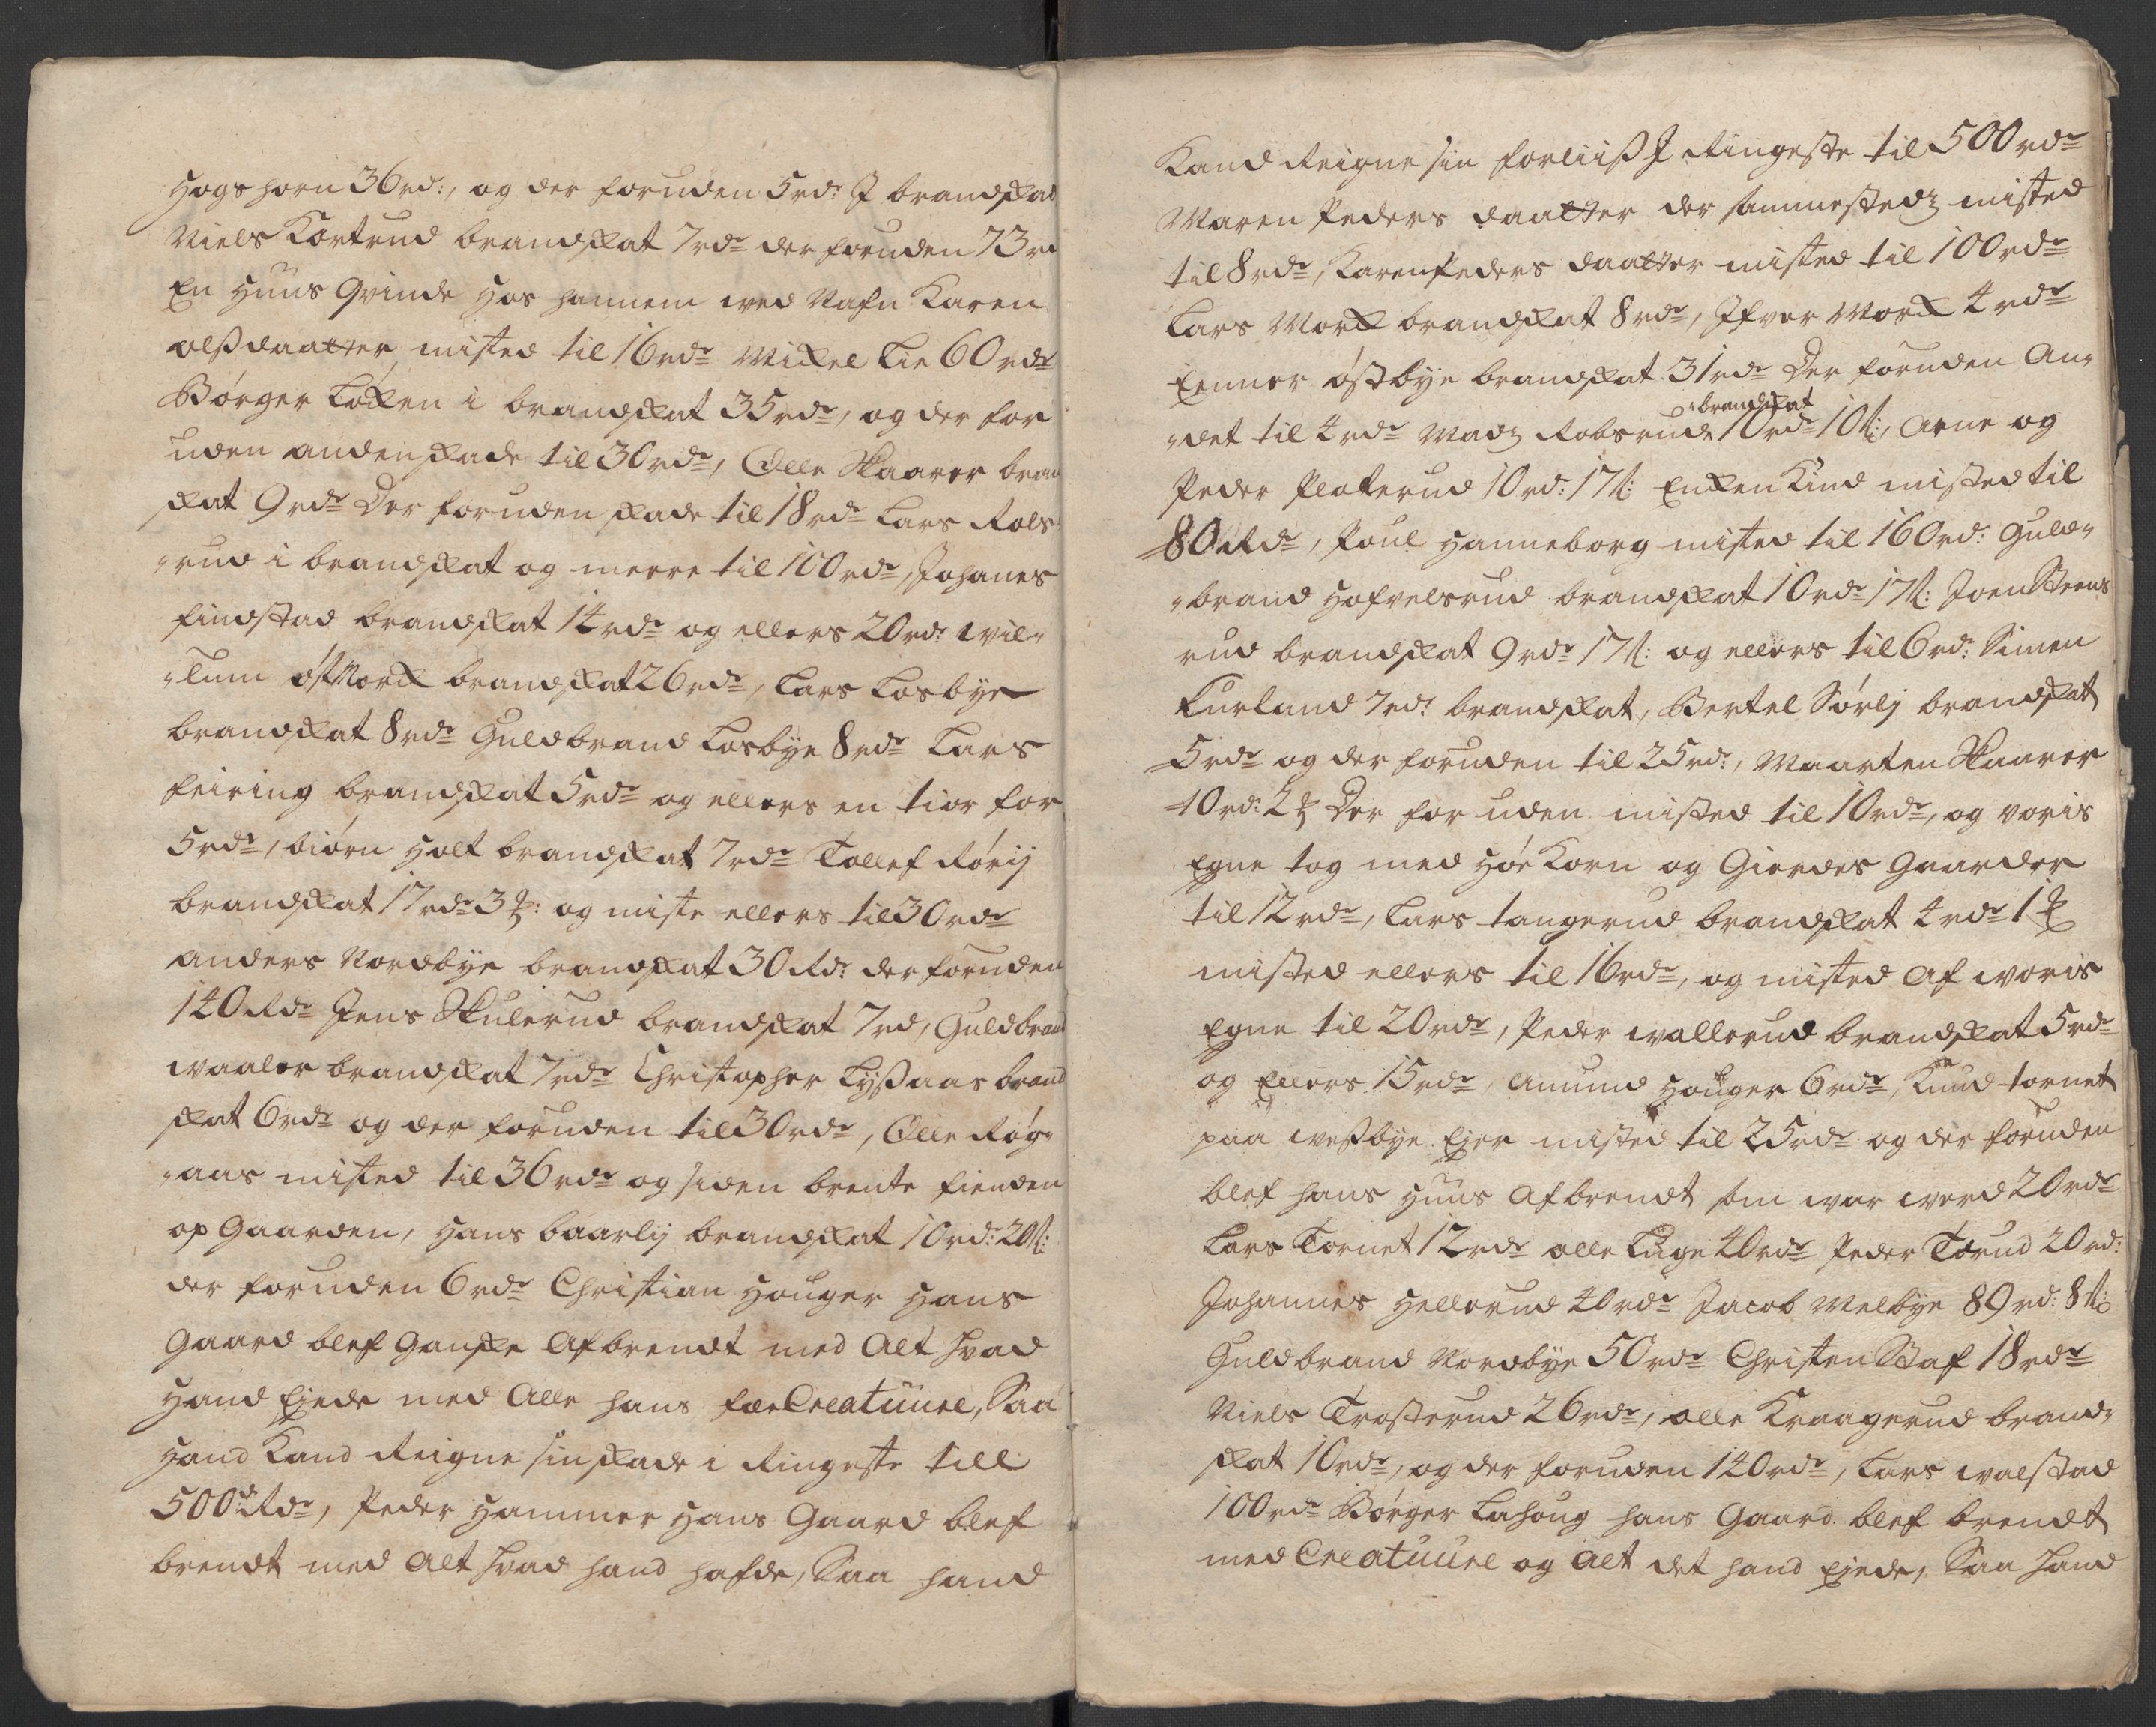 Hogshorn 36 rd:, og der foruden 5 rdr J brandskat
Niels Kortrud brandskat 7 rdr der foruden 73 rd
En Huus Qvinde hos hannem wed Nafn Karen
olsdaatter, misted til 16 rdr Mickel Lie 60 rdr
Børger Løken i brandskat 35 rdr, og der for
uden anden skade til 30 rdr, Olle Skaarer bran
skat 9 rdr Der foruden skade til 18 rdr Lars Robs
rud i brandskat og meere til 100 rdr, Johanes
findstad brandskat 14 rdr og ellers 20 rdr Wil
lum østMork brandskat 26 rdr, Lars Losbye
brandskat 8 rdr Guldbrand Losbye 8 rdr Lars
feiring brandskat 5 rdr og ellers en tior for
5 rdr, biørn Holt brandskat 7 rdr Tollef Rørij
brandskat 17 rdr 3 ƺ: og miste ellers til 30 rdr
anders Nordbye brandskat 30 Rdr der foruden
140 Rdr Jens Skulerud brandskat 7 rd, Guldbrand
waaler brandskat 7 rdr Christopher Lysaas brand
skat 6 rdr og der foruden til 30 rdr, Olle Røg
aas misted til 36 rdr og siden brente fienden
op Gaarden, Hans baarlij brandskat 10 rdr 20 s:
der foruden 6 rdr Christian Houger Hans
Gaard blef Ganske Afbrendt med Alt hvad
Hand Ejede med Alle hans fæe Creatuure, Saa
Hand Kand Reigne sin skade i Ringeste till
500 Rdr, Peder Hammer Hans Gaard blef
brendt med Alt hvad hand hafde, Saa hand
Kand Reigne sin forliis J Ringeste til 500 rdr
Maren Peders daatter der sammesteds misted
til 8 rdr, Karen Peders daatter misted til 100 rdr
Lars Mork brandskat 8 rdr, Ifver Mork 4 rdr
Einner østbye brandskat 31 rdr Der foruden An
det til 4 rdr Mads Robsrude brandskat 10 rdr 10 s:, Arne og
Peder Platerud 10 rd: 17 s: Enken Kind misted til
80 Rdr, Poul Hanneborg misted til 160 rd: Guld
brand Hofvelsrud brandskat 10 rdr 17 s: Joen Steens
rud brandskat 9 rdr 17 s: og ellers til 6 rd: Simen
Kurland 7 rdr brandskat, Bertel Sørlij brandskat
5 rdr og der foruden til 25 rdr, Maarten Skaarer
10 rd: 2 ƺ Der for uden misted til 10 rdr, og voris
Egne tog med Høe Korn og Gierdes Gaarder
til 12 rdr, Lars tangerud brandskat 4 rdr 1 ƺ
misted ellers til 16 rdr, og misted Af woris
Egne til 20 rdr, Peder wallerud brandskat 5 rdr
og Ellers 15 rdr, Amund Houger 6 rdr, Knud tornet
paa westbye Ejer misted til 25 rdr og der foruden
blef hans Huus Afbrendt som war werd 20 rdr
Lars Tornet 12 rdr olle Luge 40 rdr Peder Tørud 20 rd:
Johannes Hellerud 40 rdr Jacob Melbye 89 rd: 8 s:
Guldbrand Nordbye 50 rdr Christen Staf 18 rdr
Niels Trosterud 26 rdr, olle Kraagerud brand
skat 10 rdr, og der foruden 140 rdr, Lars walstad
100 rdr Børger Lahoug hans Gaard blef brendt
med Creatuure og Alt det hand Ejede, Saa hand